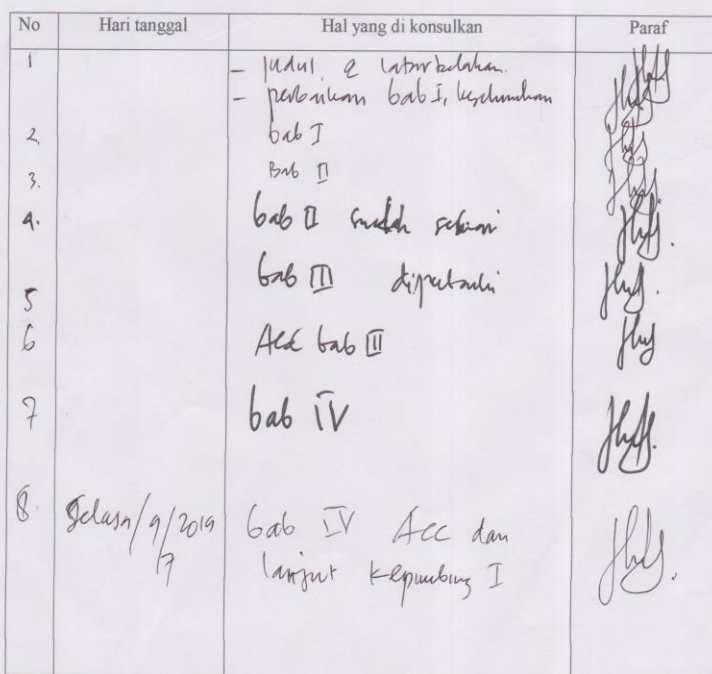 No Hari tanggal Hal yang di konsulkan Paraf
1 - Judul & latar belakang
- perbaikan bab I, keseluruhan
2. bab I
3. Bab II
4. bab II sudah sesuai
5 bab III diperbaiki
6 Acc bab III
7 bab IV
8. Selasa/9/2019 bab IV Acc dan
7 lanjut kepembimbing I